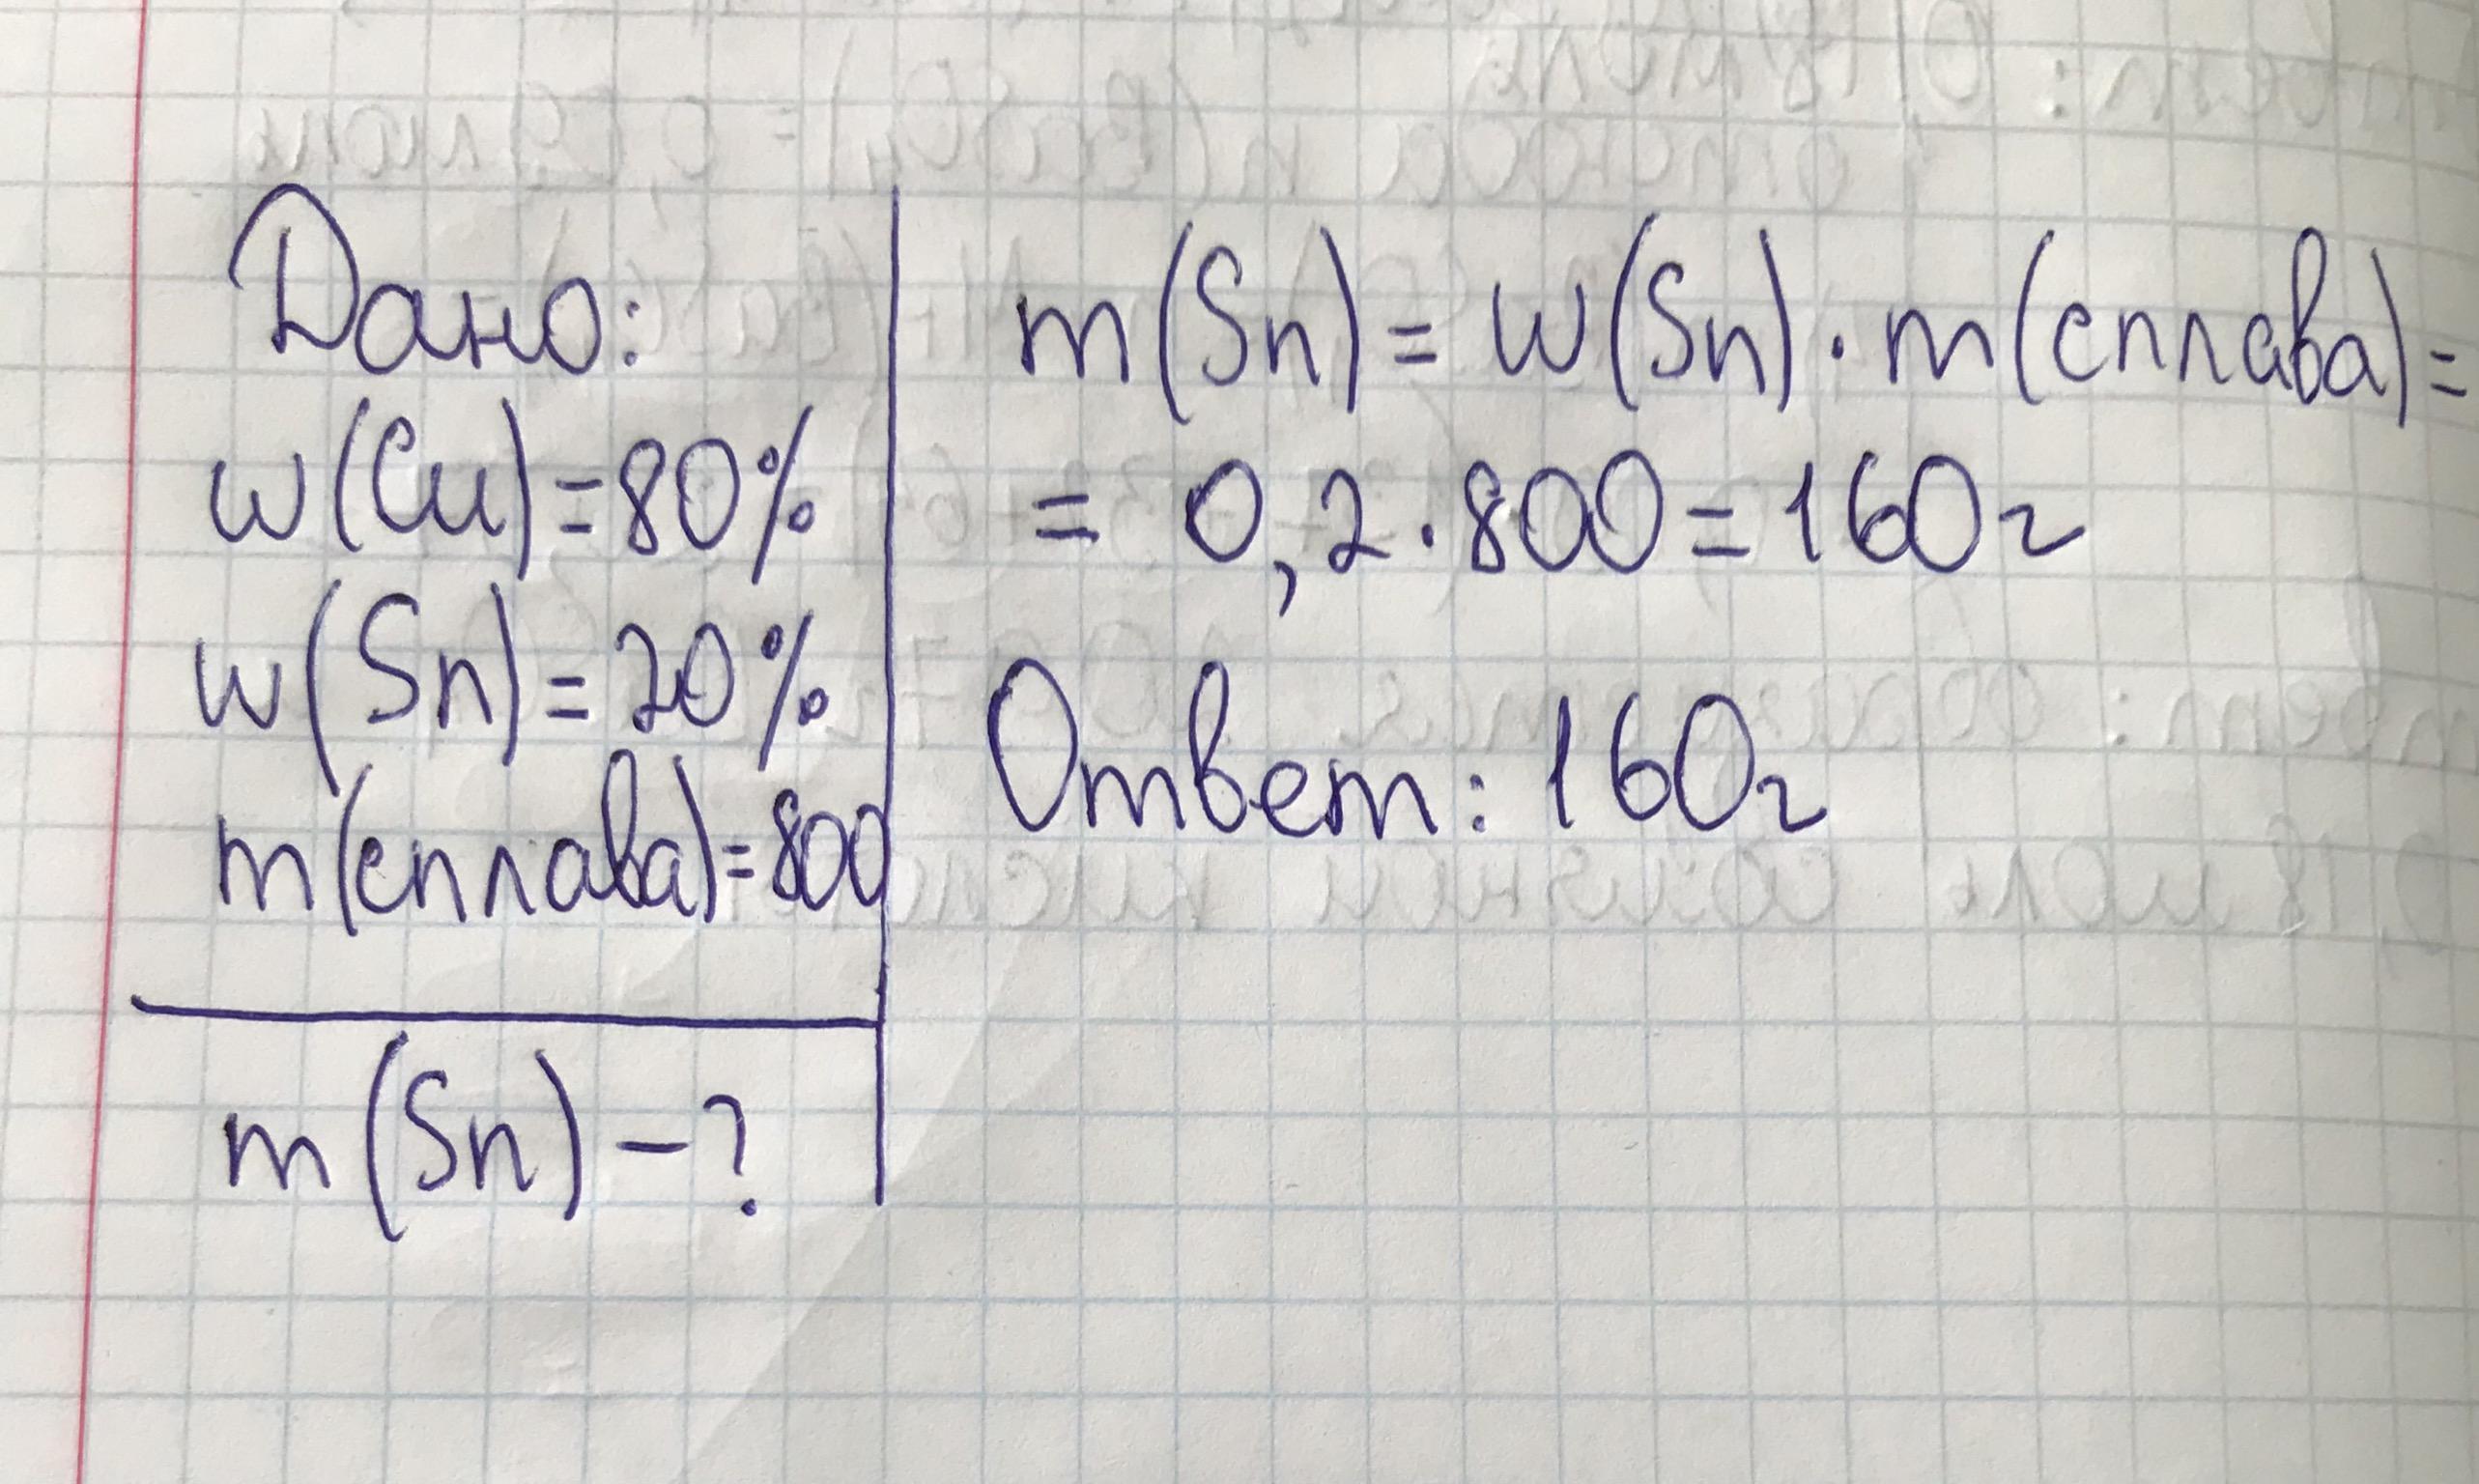 Дано:
w(Cu)=80%
w(Sn)=20%
m(сплава)=800
m(Sn)-?
m(Sn)= w(Sn)·m(сплава)=
= 0,2·800=160г
Ответ: 160г